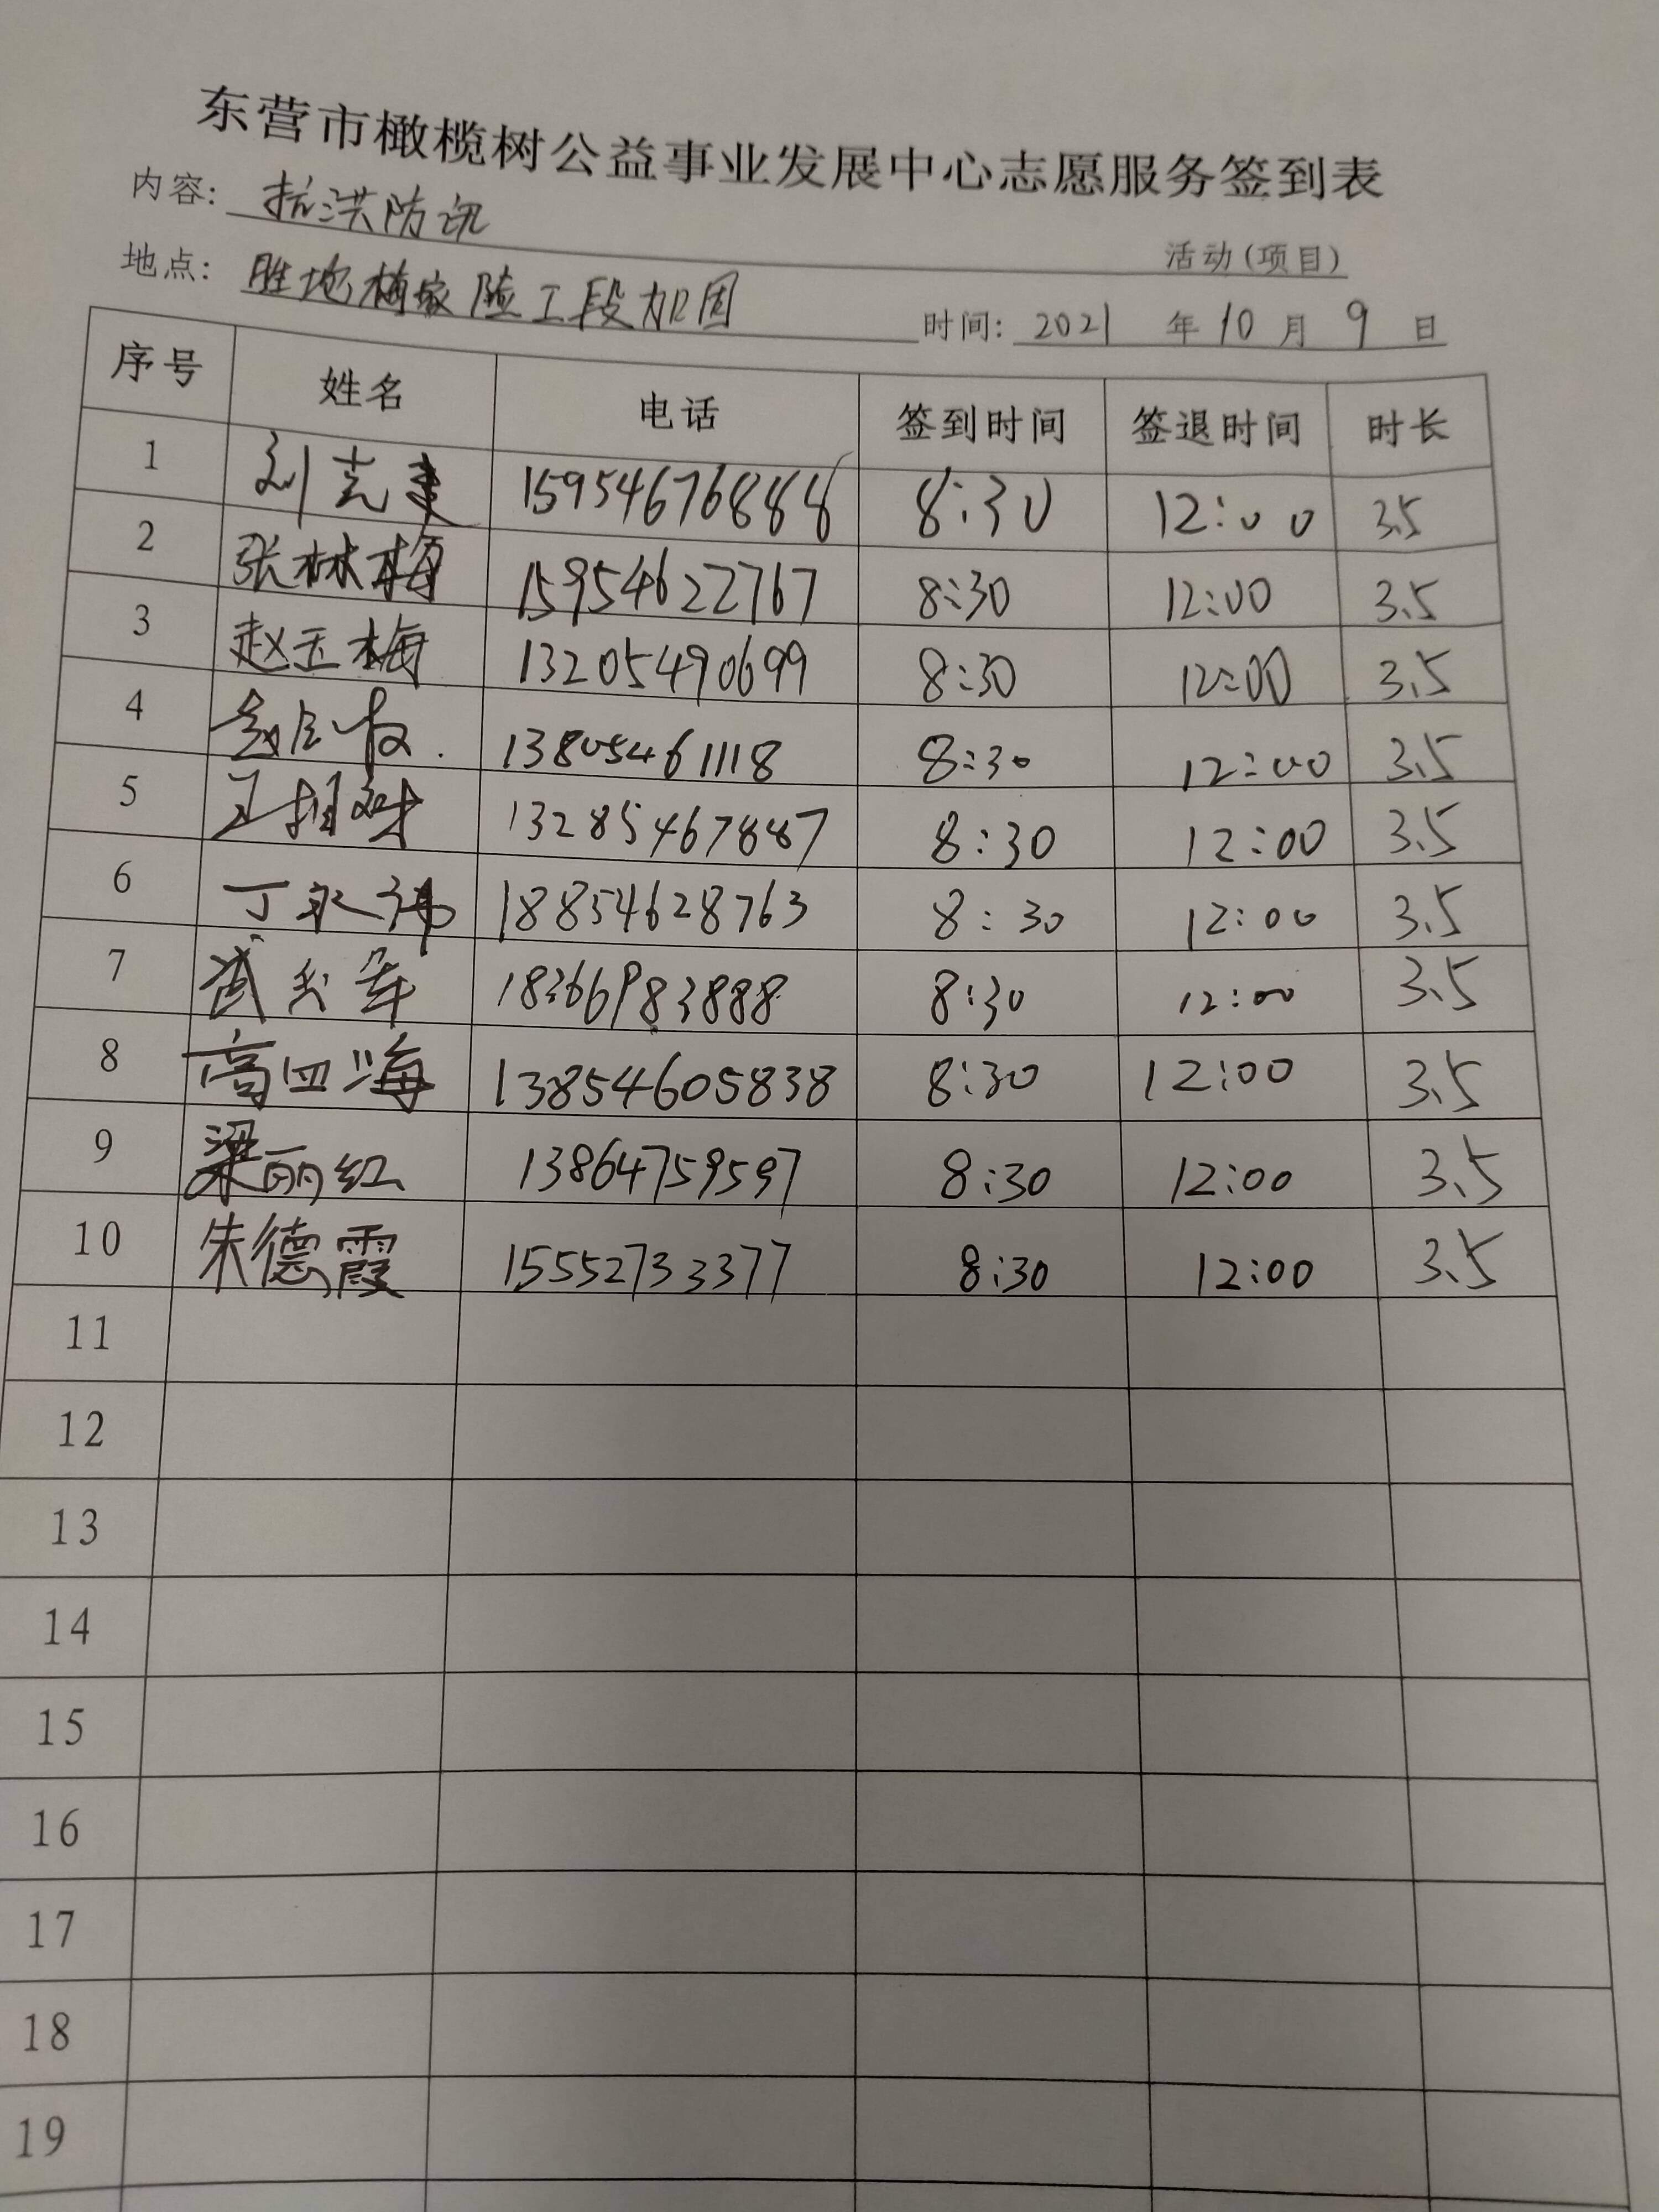 东营市橄榄树公益事业发展中心志愿服务签到表
内容: 抗洪防汛 活动(项目)
地点: 胜坨梅家险工段加固 时间: 2021 年 10 月 9 日
序号 姓名 电话 签到时间 签退时间 时长
1 刘 15954676888 8:30 12:00 3.5
2 张林梅 15954622767 8:30 12:00 3.5
3 赵玉梅 13205490699 8:30 12:00 3.5
4 13805461118 8:30 12:00 3.5
5 13285467887 8:30 12:00 3.5
6 丁 18854628763 8:30 12:00 3.5
7 18366983888 8:30 12:00 3.5
8 高四海 13854605838 8:30 12:00 3.5
9 梁丽红 13864759597 8:30 12:00 3.5
10 朱德霞 15552733377 8:30 12:00 3.5
11
12
13
14
15
16
17
18
19